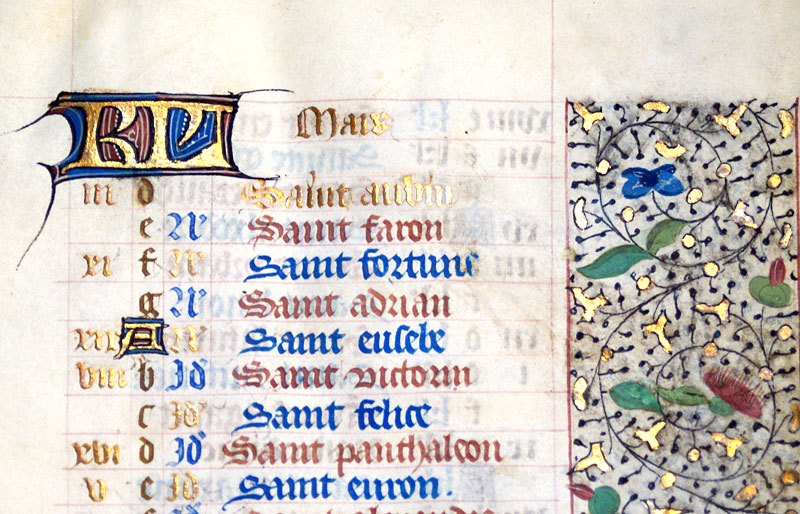 KL Mars
iii d Saint aubin
e N Saint faron
xi f N Saint fortune
g N Saint adrian
xix A N Saint eusebe
viii b Id Saint victorin
c Id Saint felice
xvi d Id Saint panthaleon
v e Id Saint euron.
f